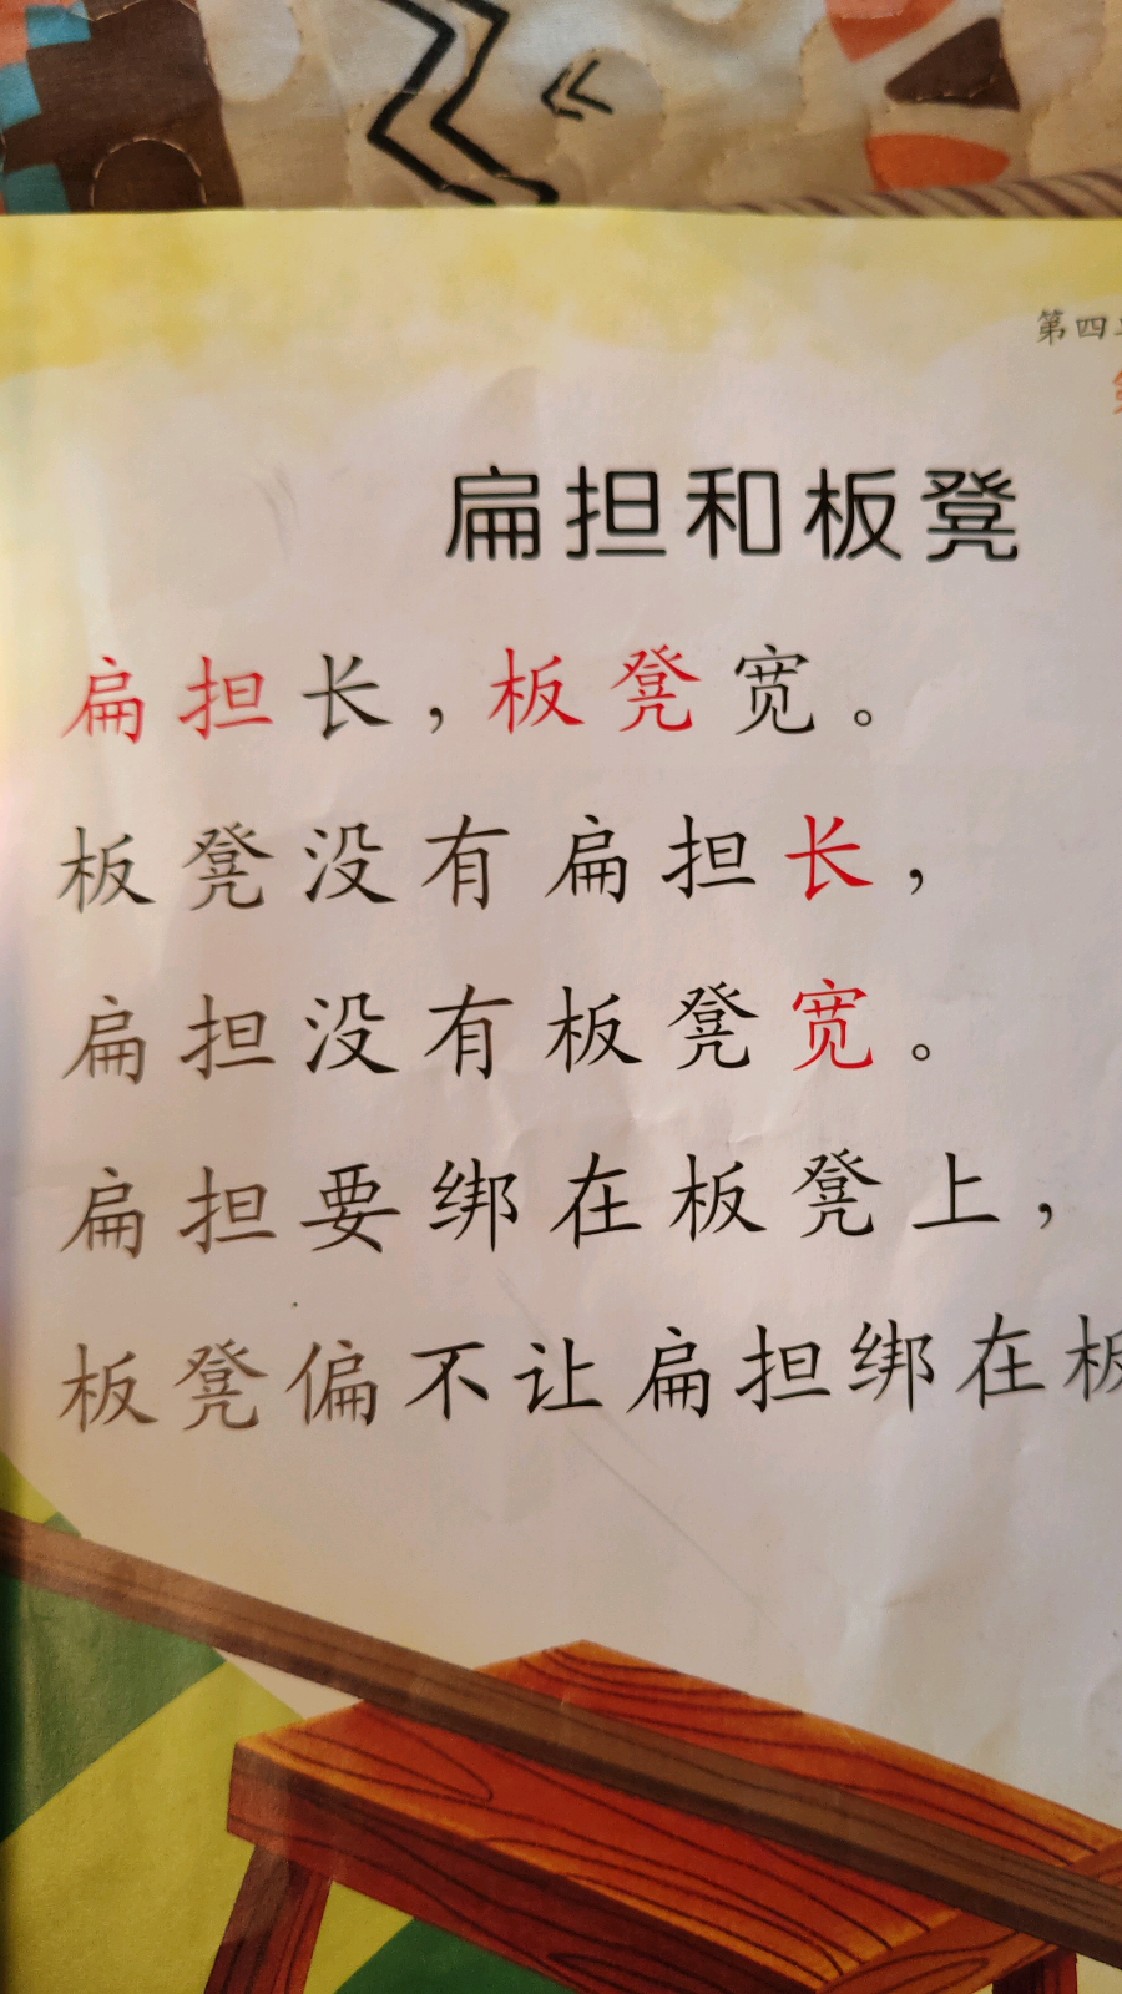 第四
扁担和板凳
扁担长，板凳宽。
板凳没有扁担长，
扁担没有板凳宽。
扁担要绑在板凳上，
板凳偏不让扁担绑在板